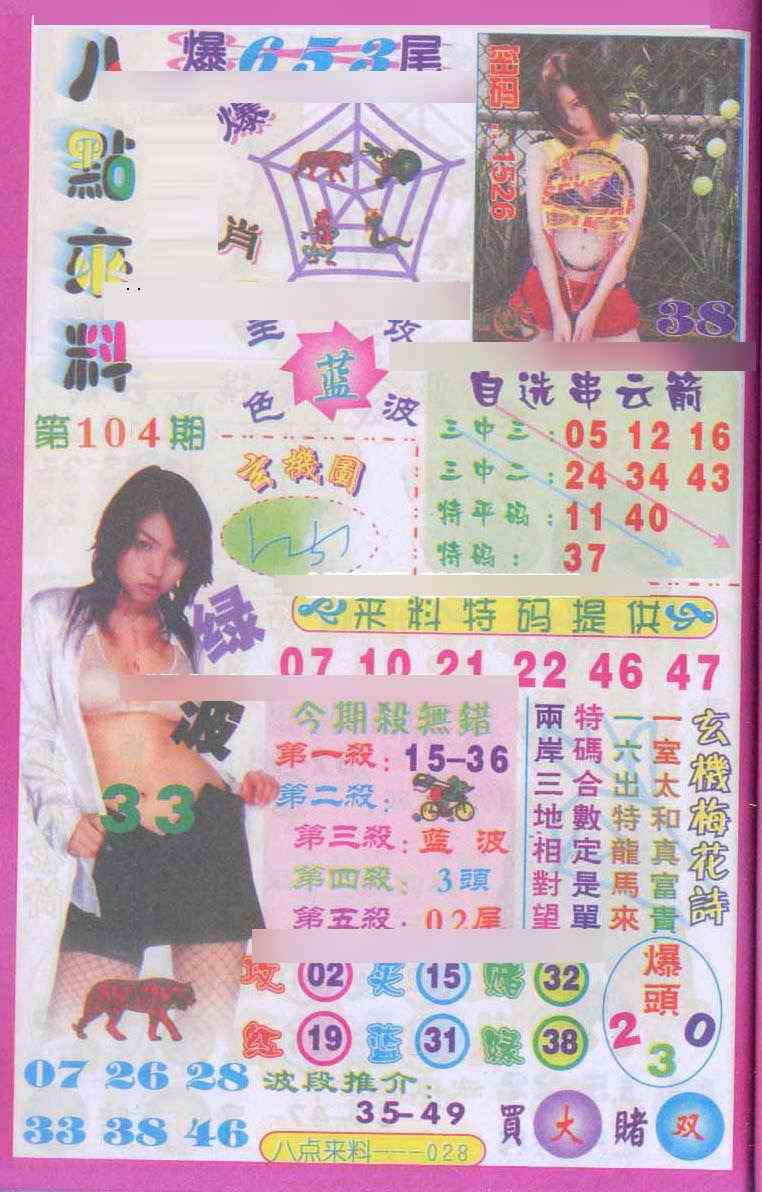 八點來料
爆653尾
爆
肖
密码:1526
38
色
蓝
波
第104期
玄機圖
自选串云箭
三中三:05 12 16
三中二:24 34 43
特平码:11 40
特码:37
绿波
33
来料特码提供
07 10 21 22 46 47
今期殺無錯
第一殺:15-36
第二殺:
第三殺:蓝波
第四殺:3頭
第五殺:02尾
玄機梅花詩
一室太和真富貴
一六出特龍馬來
特碼合數定是單
兩岸三地相對望
02 15 赌 32
红 19 蓝 31 绿 38
爆頭
2 3 0
07 26 28
33 38 46
波段推介:
35-49
買大賭双
八点来料---028